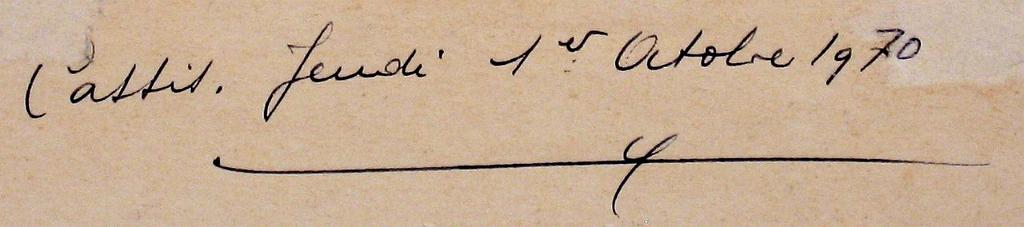 Cassis. Jeudi 1er Octobre 1970